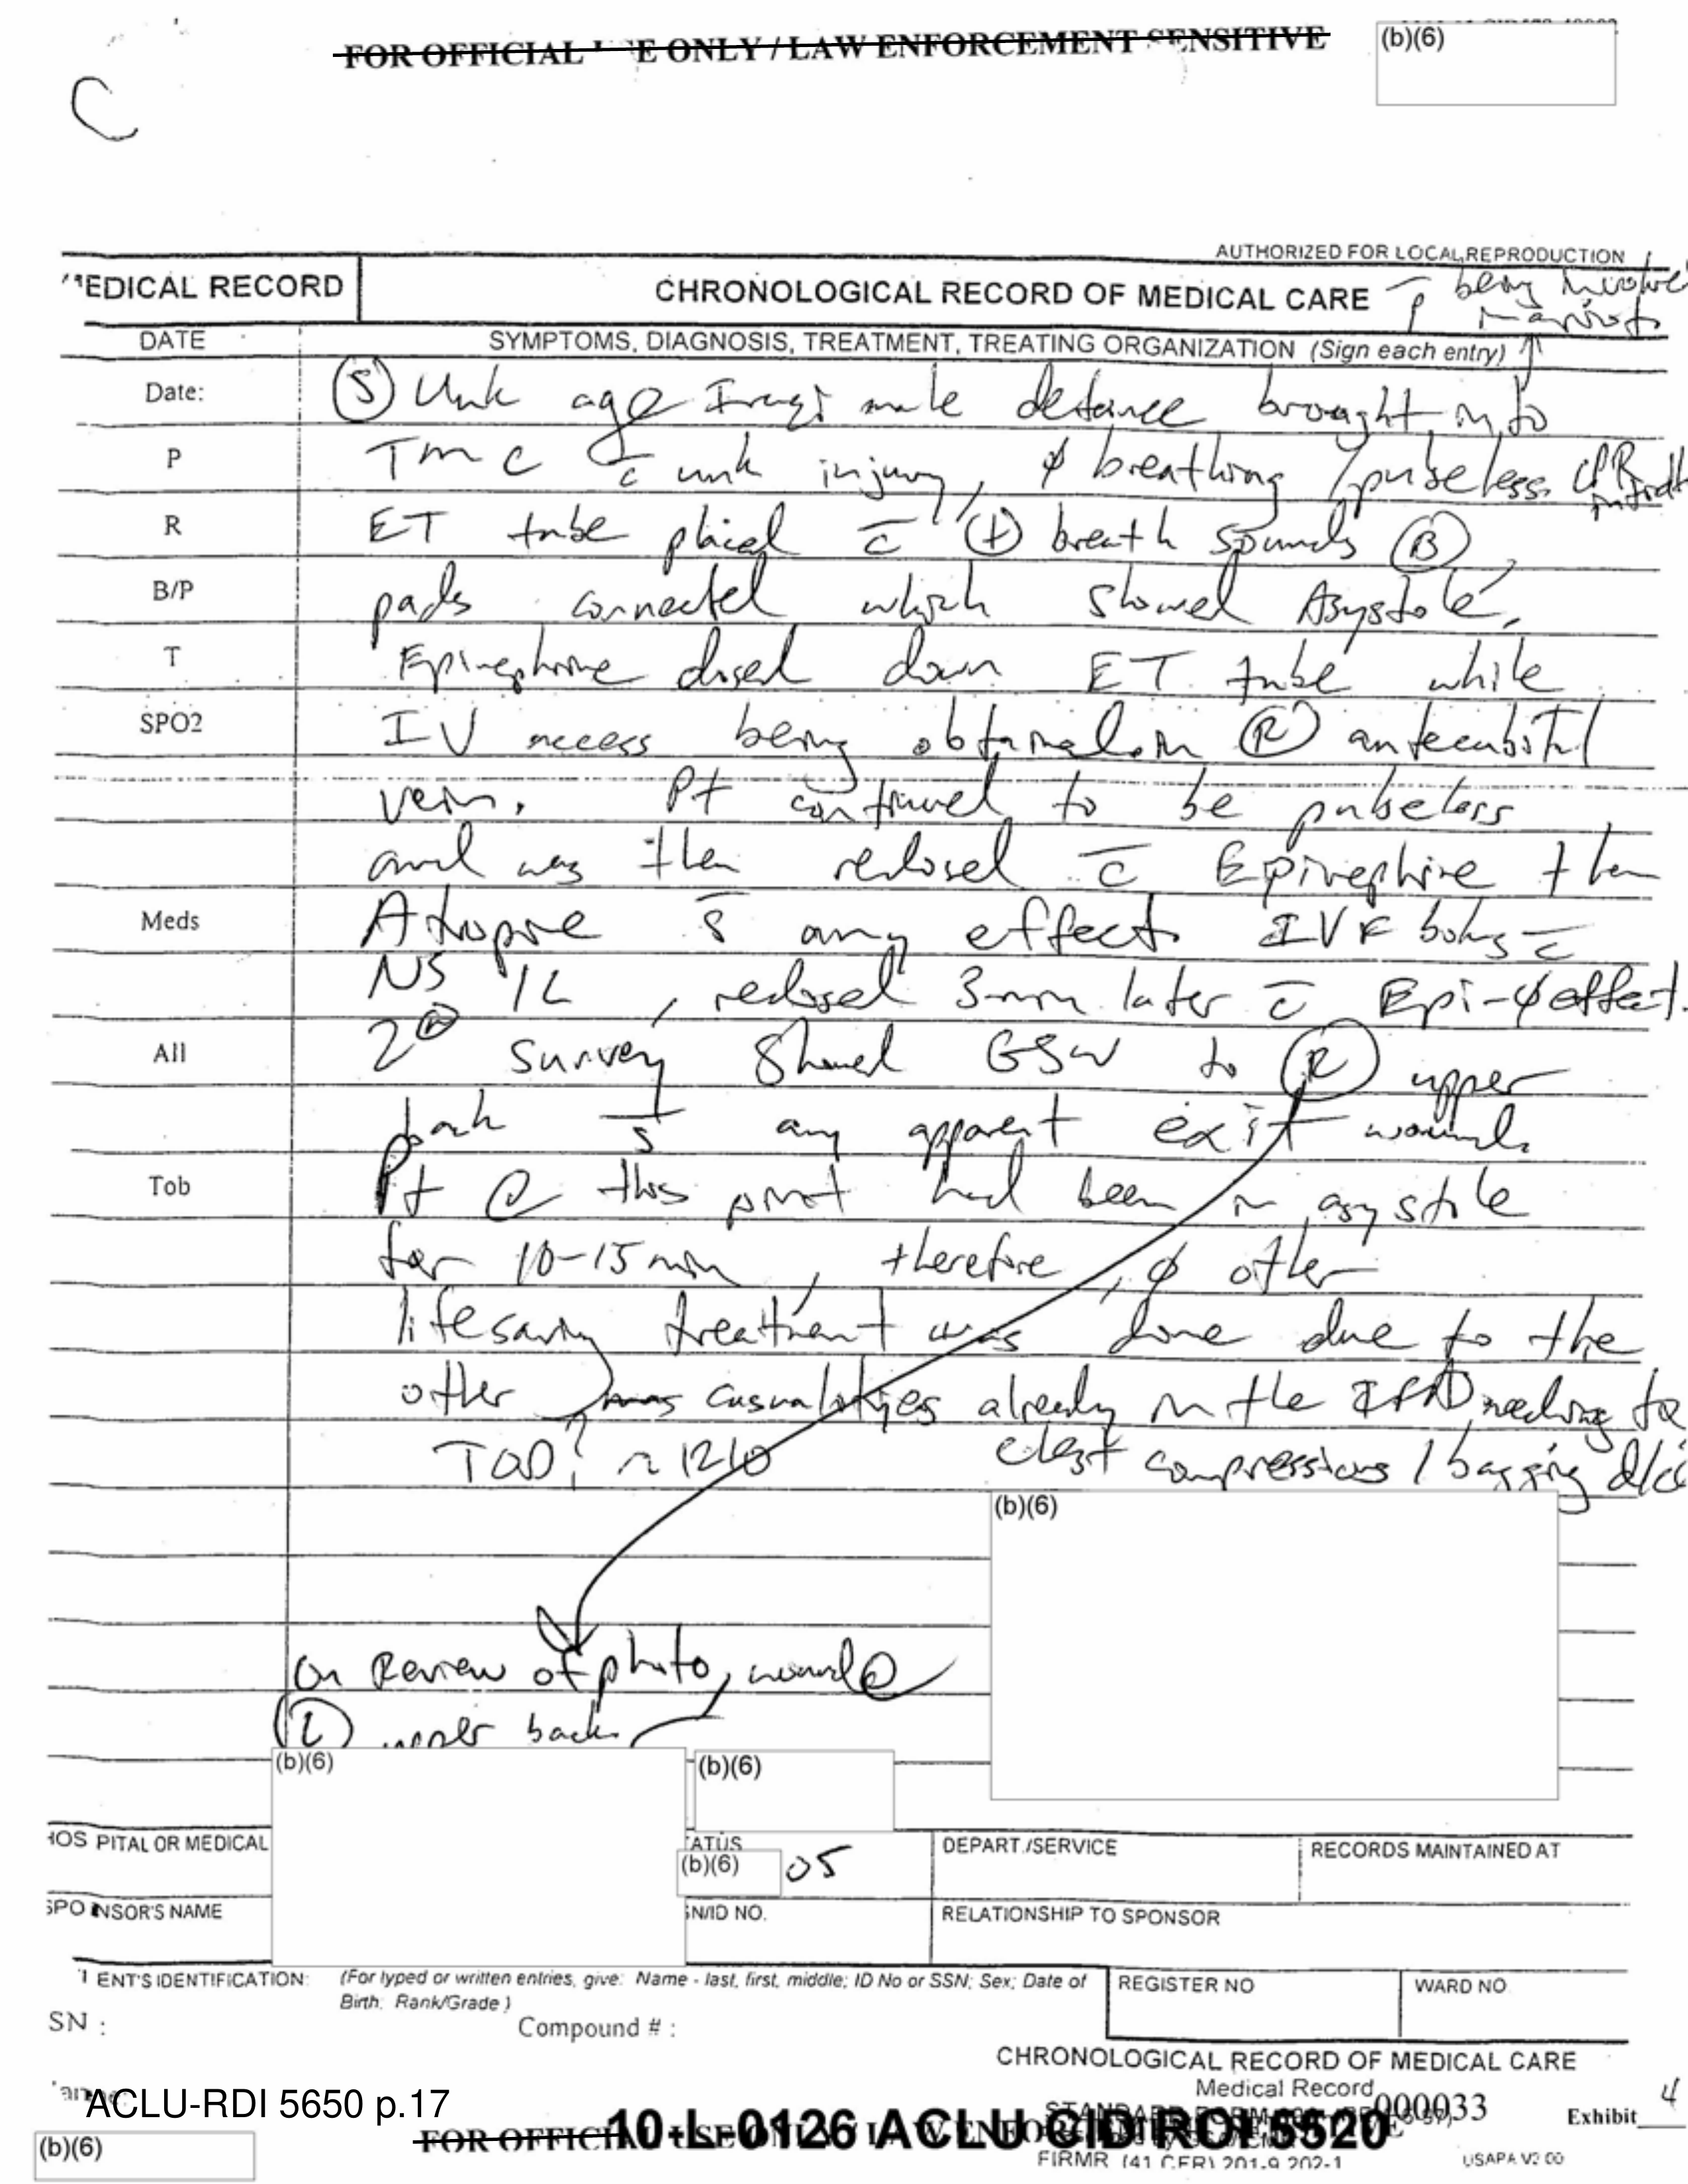 FOR OFFICIAL USE ONLY / LAW ENFORCEMENT SENSITIVE
(b)(6)
C
AUTHORIZED FOR LOCAL REPRODUCTION
MEDICAL RECORD
CHRONOLOGICAL RECORD OF MEDICAL CARE
p̄ being involved
DATE
SYMPTOMS, DIAGNOSIS, TREATMENT, TREATING ORGANIZATION (Sign each entry)
Date: Ⓢ Unk age Iraqi male detainee brought into
P TMC c̄ unk injury, ∅ breathing / pulseless. CPR
R ET tube placed c̄ ⊕ breath sounds Ⓑ,
B/P pads connected which showed Asystole.
T Epinephrine dosed down ET tube while
SPO2 IV access being obtained in Ⓡ antecubital
vein. Pt continued to be pulseless
and was then redosed c̄ Epinephrine then
Meds Atropine s̄ any effect. IVF bolus c̄
NS 1L, redosed 3 min later c̄ Epi-∅ effect.
All 2° survey showed GSW to Ⓡ upper
back s̄ any apparent exit wound.
Tob Pt @ this point had been in asystole
for 10-15 min, therefore, ∅ other
lifesaving treatment was done due to the
other mass casualties already in the needing
TOD: ~ 1210 chest compressions / bagging d/c
(b)(6)
On Review of photo, wound @
Ⓛ upper back
(b)(6)
(b)(6)
HOSPITAL OR MEDICAL
STATUS
(b)(6) 05
DEPART./SERVICE
RECORDS MAINTAINED AT
SPONSOR'S NAME
SN/ID NO.
RELATIONSHIP TO SPONSOR
TIENT'S IDENTIFICATION: (For typed or written entries, give: Name - last, first, middle; ID No or SSN; Sex; Date of
Birth; Rank/Grade.)
REGISTER NO
WARD NO
SN :
Compound # :
CHRONOLOGICAL RECORD OF MEDICAL CARE
Medical Record
ACLU-RDI 5650 p.17
000033
Exhibit 4
10-L-0126 ACLU CID ROI 5520
(b)(6)
FIRMR (41 CFR) 201-9.202-1
USAPA V2.00